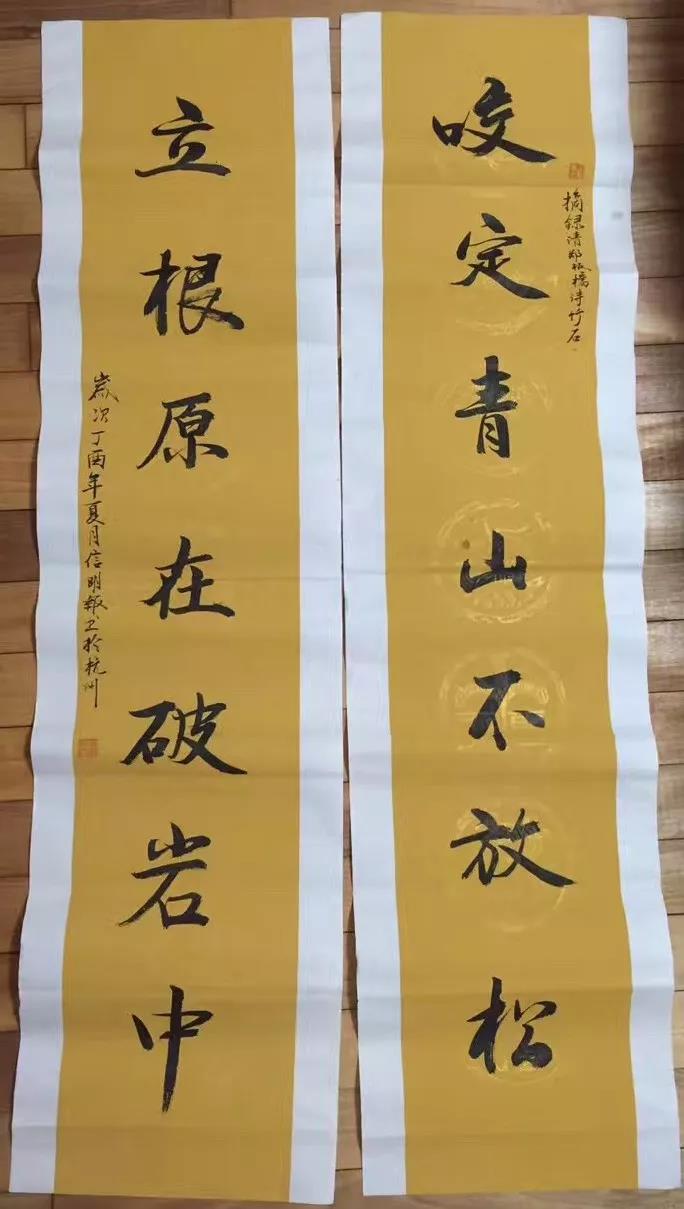 咬定青山不放松
摘録清郑板橋诗竹石
立根原在破岩中
歲次丁酉年夏月信明敬书於杭州